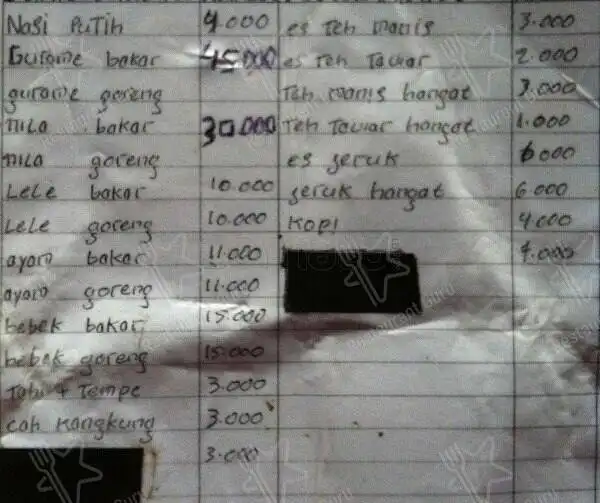 Nasi Putih 4.000 es Teh manis 3.000
Gurame bakar 45.000 es Teh Tawar 2.000
gurame goreng Teh manis hangat 3.000
nila bakar 30.000 Teh Tawar hangat 1.000
nila goreng es jeruk 6000
Lele bakar 10.000 jeruk hangat 6.000
Lele goreng 10.000 Kopi 4.000
ayam bakar 11.000
ayam goreng 11.000
bebek bakar 15.000
bebek goreng 15.000
Tahu + Tempe 3.000
cah Kangkung 3.000
3.000